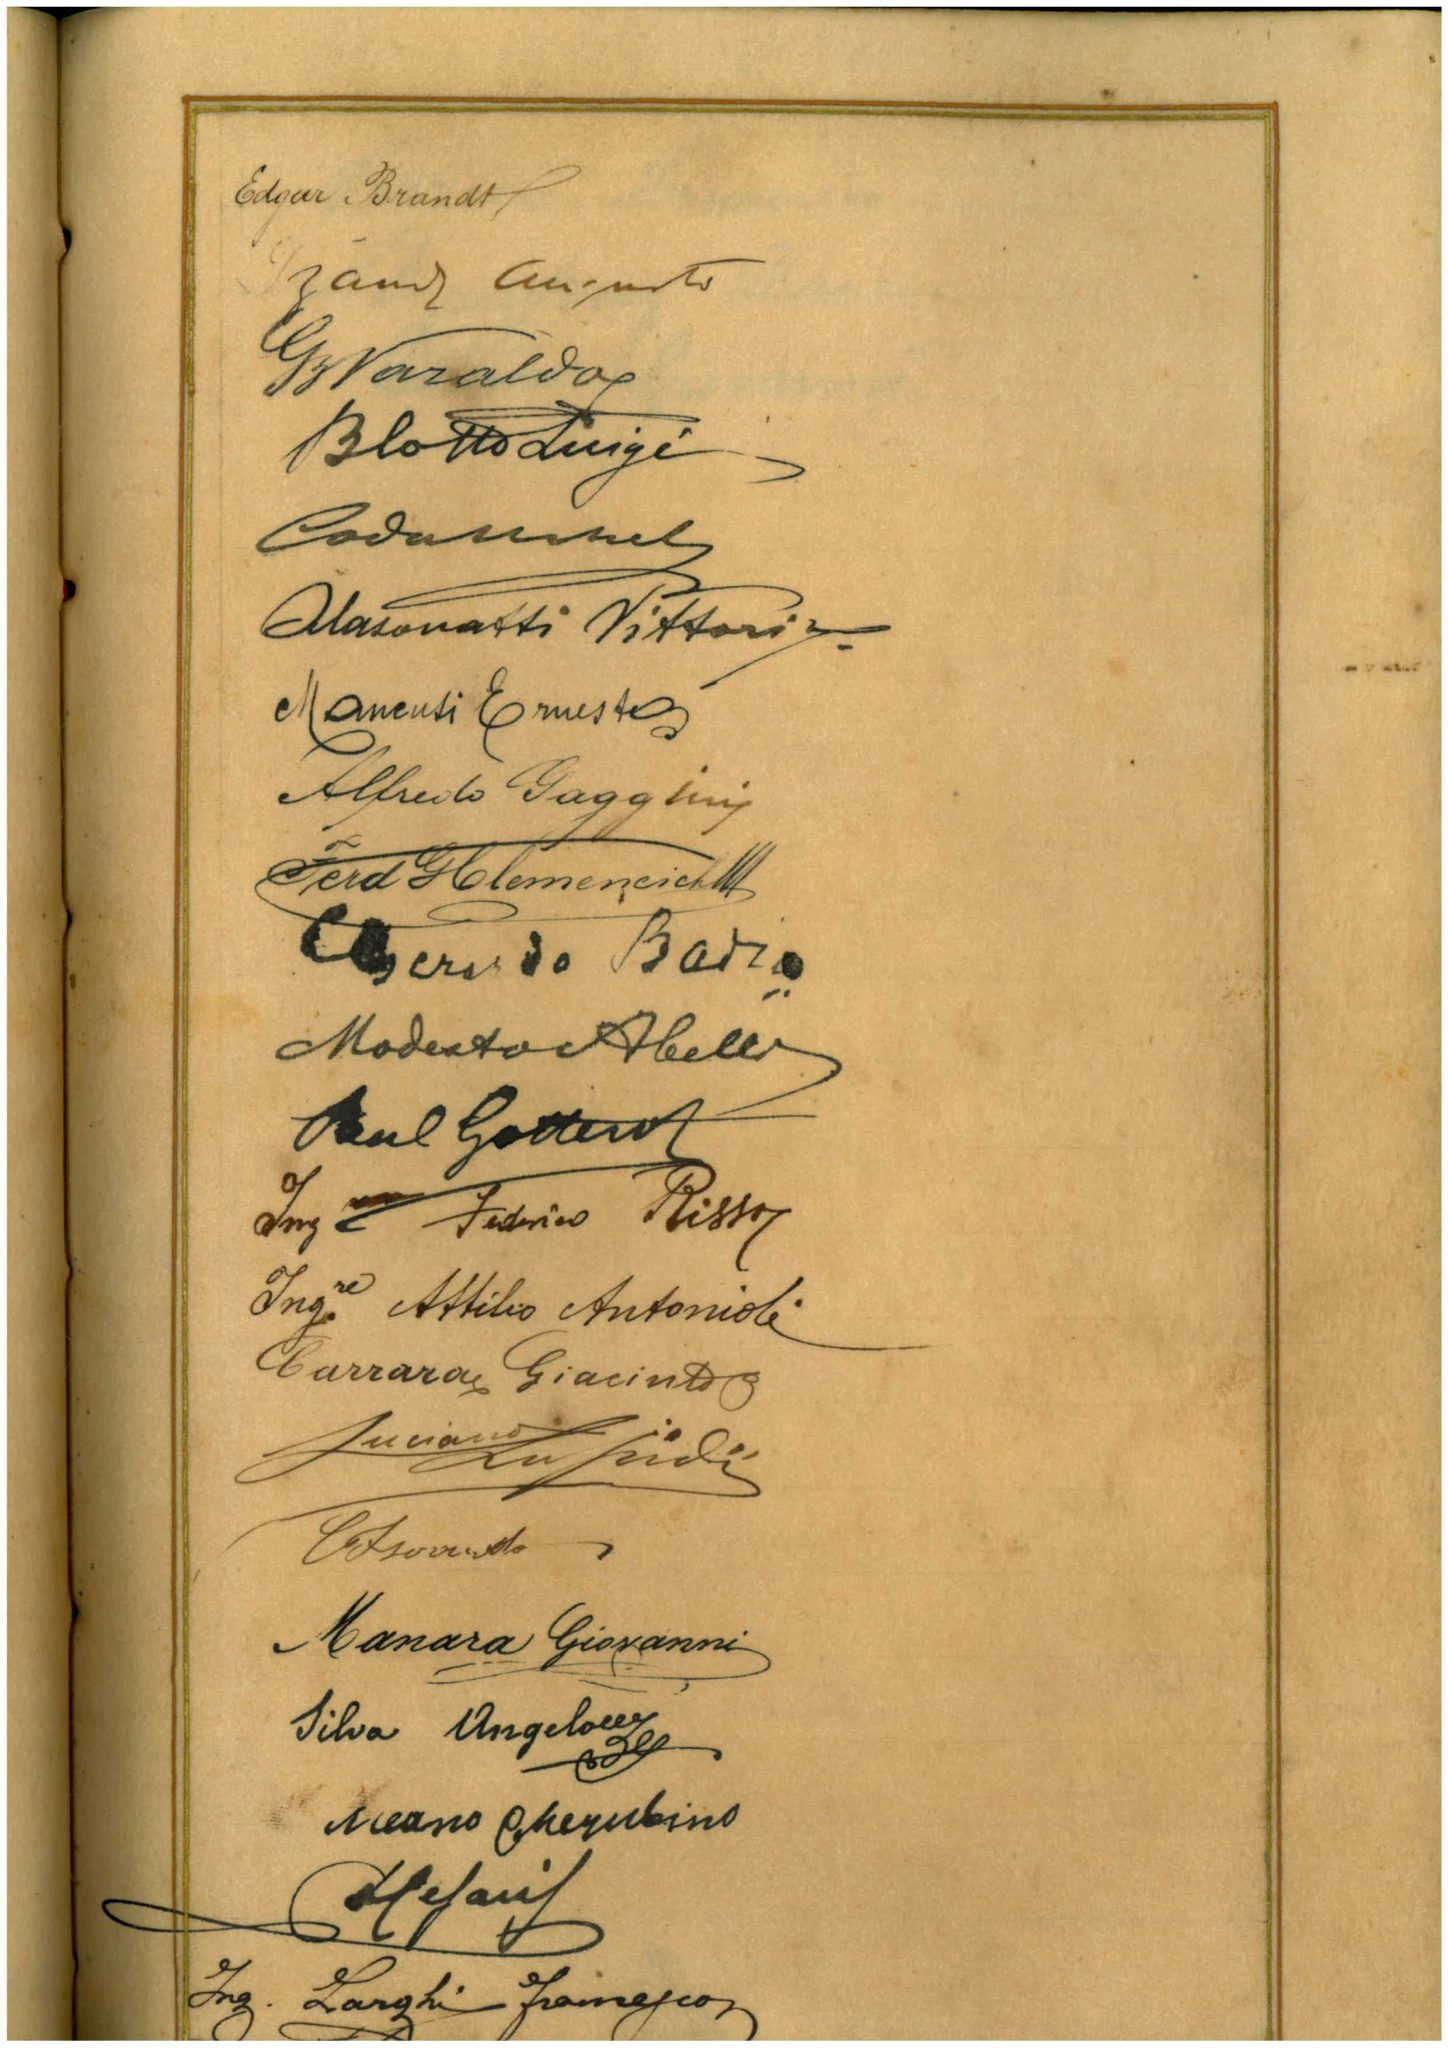 Edgar Brandt
Augusto
G. Varaldo
Blotto Luigi
Masonatti Vittorio
Manenti Ernesto
Alfredo Gaggini
Ferd Klemencich
Gerardo Badia
Modesto Abelli
Paul Gotteront
Ing Federico Risso
Ing.re Attilio Antonioli
Carrara Giacinto
Luciano
Manara Giovanni
Silva Angelo
Meano Cherubino
Ing. Larghi Francesco